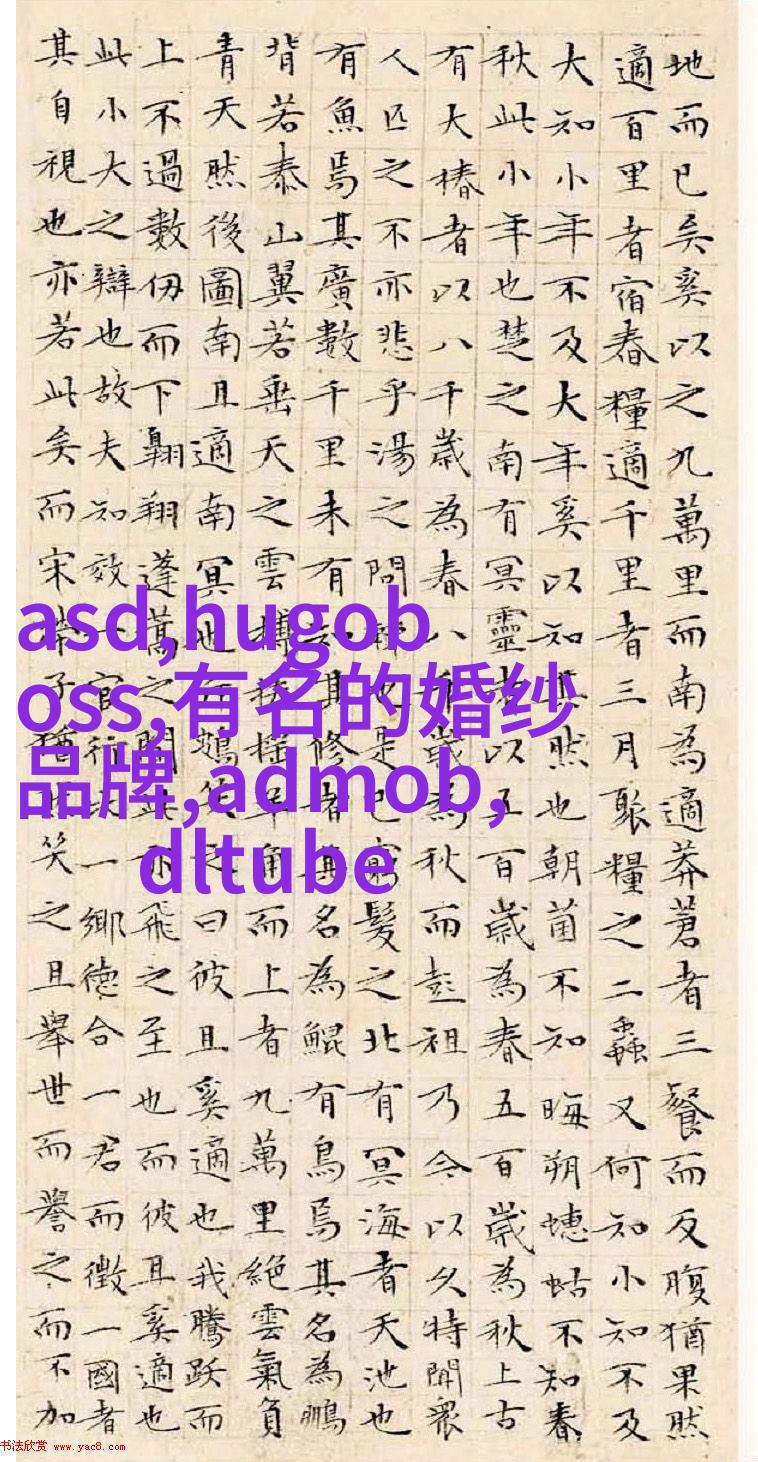 地而已矣奚以之九萬里而南為適莽蒼者三餐而反腹猶果然
適百里者宿舂糧適千里者三月聚糧之二蟲又何知小知不及
大知小年不及大年奚以知其然也朝菌不知晦朔蟪蛄不知春
秋此小年也楚之南有冥靈者以五百歲為春五百歲為秋上古
有大椿者以八千歲為春八千歲為秋而彭祖乃今以久特聞眾
人匹之不亦悲乎湯之問棘也是已窮髮之北有冥海者天池也
有魚焉其廣數千里未有知其修者其名為鯤有鳥焉其名為鵬
背若泰山翼若垂天之雲摶扶搖羊角而上者九萬里絕雲氣負
青天然後圖南且適南冥也鴳笑之曰彼且奚適也我騰躍而
上不過數仞而下翱翔蓬蒿之間此亦飛之至也而彼且奚適也
此小大之辯也故夫知效一官行一鄉德合一君而徵一國者
其自視也亦若此矣而宋榮子猶笑之且舉世而譽之而不加
asd,hugob
oss,有名的婚纱
品牌,admob,
dltube
书法欣赏 www.yac8.com